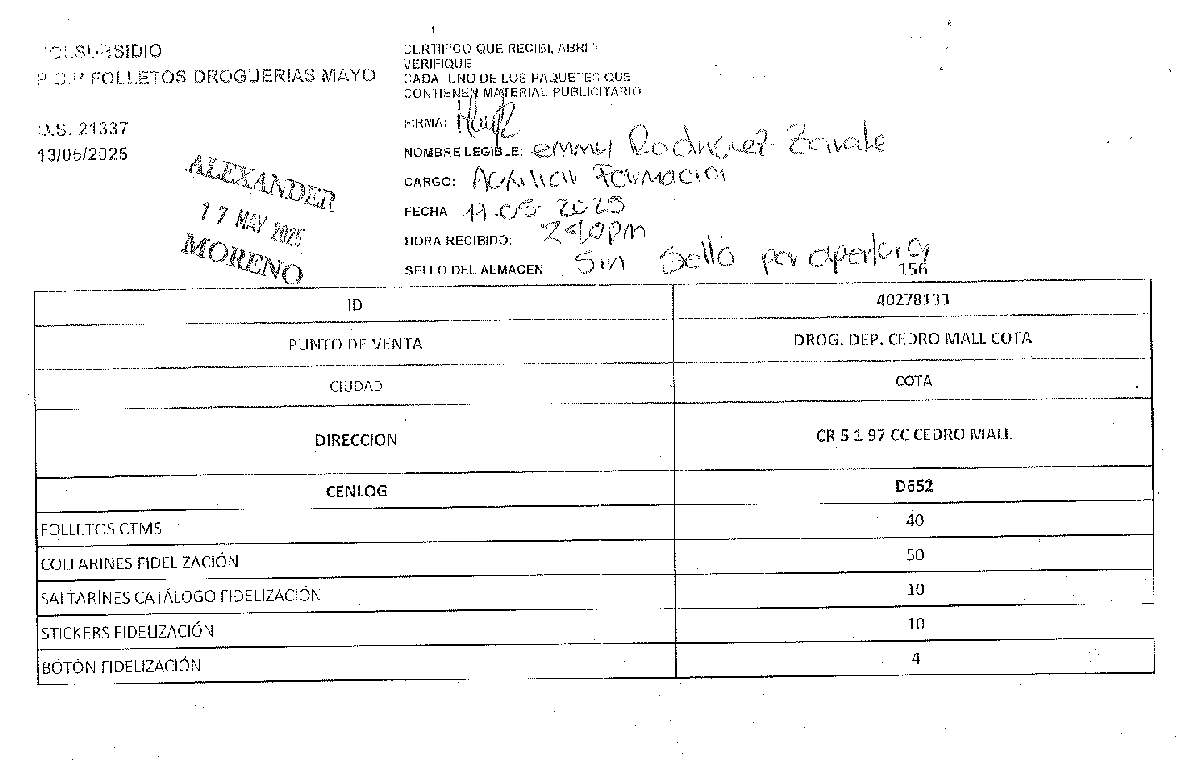 COLSUBSIDIO
P.O.P FOLLETOS DROGUERIAS MAYO
O.S. 21337
13/05/2025
ALEXANDER
17 MAY 2025
MORENO
CERTIFICO QUE RECIBI, ABRI Y
VERIFIQUE
CADA UNO DE LOS PAQUETES QUE
CONTIENEN MATERIAL PUBLICITARIO
FIRMA:
NOMBRE LEGIBLE: emmy Rodriguez Zarate
CARGO: Auxiliar Formacion
FECHA 17.05 2025
HORA RECIBIDO: 2:40pm
SELLO DEL ALMACEN Sin Sello por apertura
156
ID 40278133
PUNTO DE VENTA DROG. DEP. CEDRO MALL COTA
CIUDAD COTA
DIRECCION CR 5 1 97 CC CEDRO MALL
CENLOG D652
FOLLETOS CTMS 40
COLLARINES FIDELIZACIÓN 50
SALTARINES CATÁLOGO FIDELIZACIÓN 10
STICKERS FIDELIZACIÓN 10
BOTÓN FIDELIZACIÓN 4